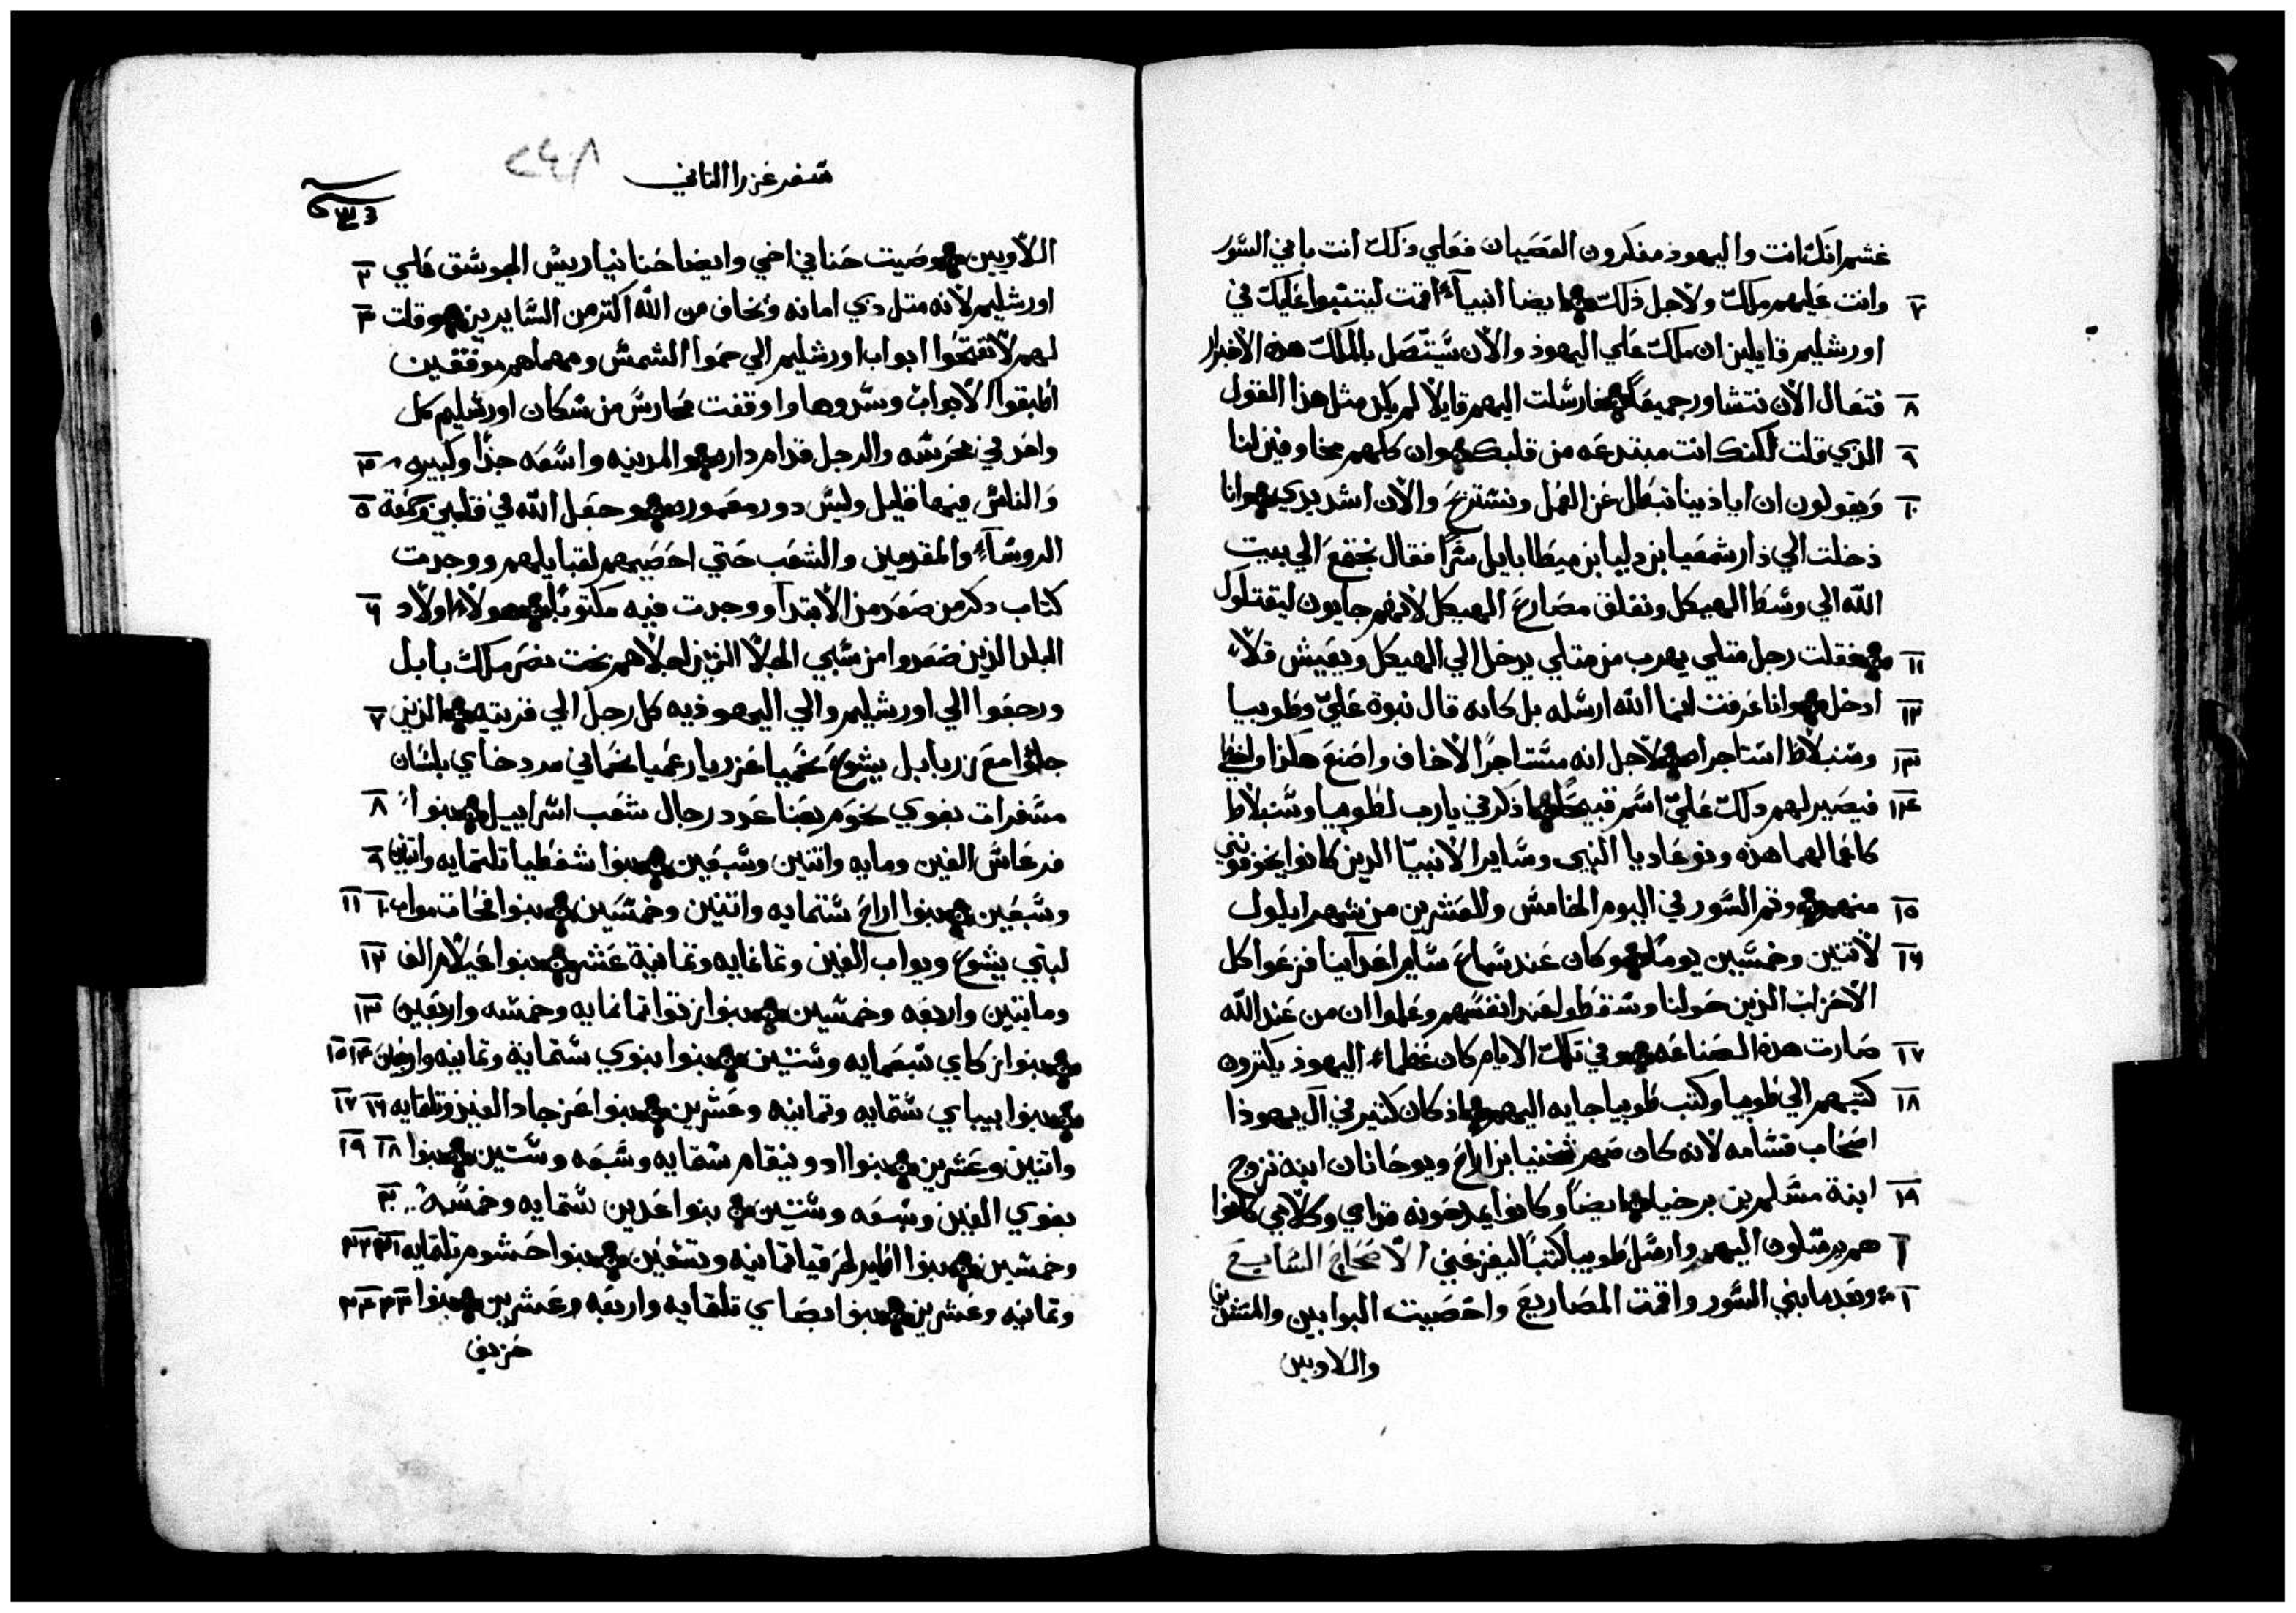 غشم انك انت واليهود مفكرون العصيان فعلي ذلك انت باني السور
٧ وانت عليهم ملك ولاجل ذلك ايضا انبيآء اقمت ليتنبوا عليك في
اورشليم قايلين ان ملك علي اليهود والان سيتصل بالملك هذه الاخبار
٨ فتعال الان نتشاور جميعاً فارسلت اليهم قايلا لم يكن مثل هذا القول
٩ الذي قلت لكنك انت مبتدعه من قلبك وان كلهم مخاوفين لنا
١٠ ويقولون ان اياذينا تبطل عن العمل ونستريح والان اشدد يدي وانا
دخلت الي دار شمعيا بن دليا بن ميطابايل سرًا فقال نجتمع الي بيت
الله الي وسط الهيكل ونغلق مصاريع الهيكل لانهم جايون ليقتلوك
١١ فقلت رجل مثلي يهرب من مثلي يدخل الي الهيكل ويعيش فلا
١٢ ادخل وانا عرفت انما الله ارسله بل كانه قال نبوة عليّ وطوبيا
١٣ وسنبلاط استاجراه لاجل انه مستاجرًا لاخاف واصنع هكذا واخطي
١٤ فيصير لهم ذلك عليّ اسم قبيح اذكرني يارب لطوبيا وسنبلاط
كاعمالهما هذه ونوعاديا النبي وساير الانبيا الذين كانوا يخوفوني
١٥ منهم وتم السور في اليوم الخامس والعشرين من شهر ايلول
١٦ لاتنين وخمسين يومًا وكان عند سماع ساير اعدآينا فزعوا كل
الاحزاب الذين حولنا وسقطوا عند انفسهم وعلموا ان من عند الله
١٧ صارت هذه الصناعه وفي تلك الايام كان عظماء اليهود يكترون
١٨ كتبهم الي طوبيا وكتب طوبيا جايه اليهم اذ كان كتير في ال يهوذا
اصحاب قسامه لانه كان صهر شخنيا بن اراح ويوحانان ابنه تزوج
١٩ ابنة مسلم بن برخيا ايضاً وكانوا يمدحونه قدامي وكلامي كانوا
هم يرسلون اليهم وارسل طوبيا كتبًا ليفزعني الاصحاح السابع
١ وبعد ما بني السور واقمت المصاريع واحصيت البوابين والمتقدين
واللاويين
سفر عزرا التاني
٢٤٨
اللاويين وصيت حناني اخي وايضا حنانيا ريس الجوسق علي ٢
اورشليم لانه متل دي امانه وخاف من الله اكتر من السايرين وقلت ٣
لهم لا تفتحوا ابواب اورشليم الي حموا الشمس ومهما هم موفقين
اطبقوا الابواب وسدوها واوقفت محارس من سكان اورشليم كل
واحد في محرسه والرجل قدام داره والمدينه واسعه جدًا وكبيره ٤
والناس فيها قليل وليس دور معموره وجعل الله في قلبي وجمعت ٥
الروسآء والمقدمين والشعب حتي احصيهم لقبايلهم ووجدت
كتاب دكر من صعد من الابتدآ ووجدت فيه مكتوبا هولاء اولاد ٦
البلد الذين صعدوا من سبي الجلا الذين اجلاهم بخت نصر ملك بابل
ورجعوا الي اورشليم والي اليهوذيه كل رجل الي قريته الذين ٧
جاوا مع زربابل يشوع نحميا عزريا رعميا نحماني مردخاي بلسان
مسفرات بغوي نحوم بعنا عدد رجال شعب اسراييل بنوا ٨
فرعاش الفين ومايه واتنين وسبعين بنوا شفطيا تلتمايه واتنين ٩
وسبعين بنوا اراح ستمايه واتنين وخمسين بنوا فحات مواب ١٠ ١١
لبني يشوع ويواب الفين وتمانمايه وتمانية عشر بنوا عيلام الف ١٢
ومايتين واربعه وخمسين بنوا زتوا تمانمايه وخمسه واربعين ١٣
بنوا زكاي سبعمايه وستين بنوا بنوي ستماية وتمانيه واربعين ١٤ ١٥
بنوا بيباي ستمايه وتمانيه وعشرين بنوا عزجاد الفين وتلتمايه ١٦ ١٧
واتنين وعشرين بنوا ادونيقام ستمايه وسبعه وستين بنوا ١٨ ١٩
بغوي الفين وسبعه وستين بنوا عدين ستمايه وخمسة ٢٠
وخمسين بنوا اطير لحزقيا تمانيه وتسعين بنوا حشوم تلتمايه ٢١ ٢٢
وتمانيه وعشرين بنوا بصاي تلتمايه واربعه وعشرين بنوا ٢٣ ٢٤